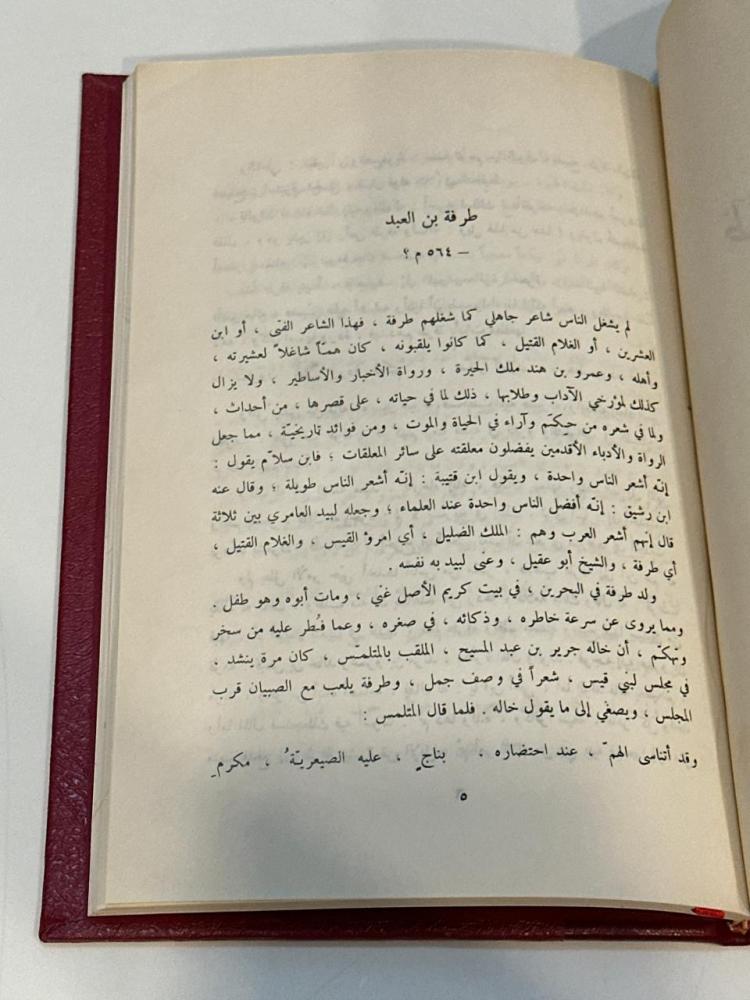 طرفة بن العبد
– ٥٦٤ م ؟
لم يشغل الناس شاعر جاهلي كما شغلهم طرفة ، فهذا الشاعر الفتى ، أو ابن
العشرين ، أو الغلام القتيل ، كما كانوا يلقبونه ، كان همّاً شاغلاً لعشيرته ،
وأهله ، وعمرو بن هند ملك الحيرة ، ورواة الأخبار والأساطير ، ولا يزال
كذلك لمؤرخي الآداب وطلابها ، ذلك لما في حياته ، على قصرها ، من أحداث ،
ولما في شعره من حِكَم وآراء في الحياة والموت ، ومن فوائد تاريخيّة ، مما جعل
الرواة والأدباء الأقدمين يفضلون معلقته على سائر المعلقات ؛ فابن سلاّم يقول :
إنّه أشعر الناس واحدة ، ويقول ابن قتيبة : إنّه أشعر الناس طويلة ؛ وقال عنه
ابن رشيق : إنّه أفضل الناس واحدة عند العلماء ؛ وجعله لبيد العامري بين ثلاثة
قال إنّهم أشعر العرب وهم : الملك الضليل ، أي امرؤ القيس ، والغلام القتيل ،
أي طرفة ، والشيخ أبو عقيل ، وعنى لبيد به نفسه .
ولد طرفة في البحرين ، في بيت كريم الأصل غني ، ومات أبوه وهو طفل .
ومما يروى عن سرعة خاطره ، وذكائه ، في صغره ، وعما فُطر عليه من سخر
وتهكّم ، أن خاله جرير بن عبد المسيح ، الملقب بالمتلمّس ، كان مرة ينشد ،
في مجلس لبني قيس ، شعراً في وصف جمل ، وطرفة يلعب مع الصبيان قرب
المجلس ، ويصغي إلى ما يقول خاله . فلما قال المتلمس :
وقد أتناسى الهمّ ، عند احتضاره ، بناجٍ ، عليه الصيعريّةُ ، مكرمِ
٥